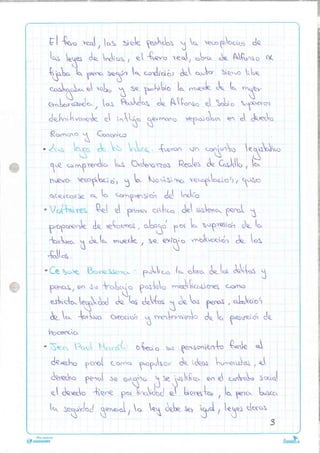 El fuero real, las siete partidas y la recopilación de
las leyes de Indias, el fuero real, obra de Alfonso IX
fijaba la pena según la condición del autor siervo o libre
castigaba el robo y se prohibio la muerte de la mujer
embarazada, las Partidas de Alfonso el Sabio superaron
definitivamente el influjo germano reposaban en el derecho
Romano y Canonico
• leyes de Indias fueron un conjunto legislativo
que comprendio las Ordenanzas Reales de Castilla, la
nueva recopilación, y la Novisima recopilacion, quiso
acercarse a la comprension del Indio
• Voltaires fue el primer critico del sistema penal y
proponente de reformas, abogó por la supresion de la
tortura y de la muerte, se exigio motivacion de los
fallos.
• publico la obra de los delitos y
penas, en su trabajo postulo modificaciones como
estricta legalidad de los delitos y de las penas, abolicion
de la tortura y mantenimiento de la presuncion de
inocencia
• Jean Paul Marat: ofrecio su pensamiento frente al
derecho penal como propulsor de ideas humanistas, el
derecho penal se origino y se justifica en el contrato social
el derecho tiene por finalidad el bienestar, la pena busca
la seguridad general, la ley debe ser igual, leyes claras
3